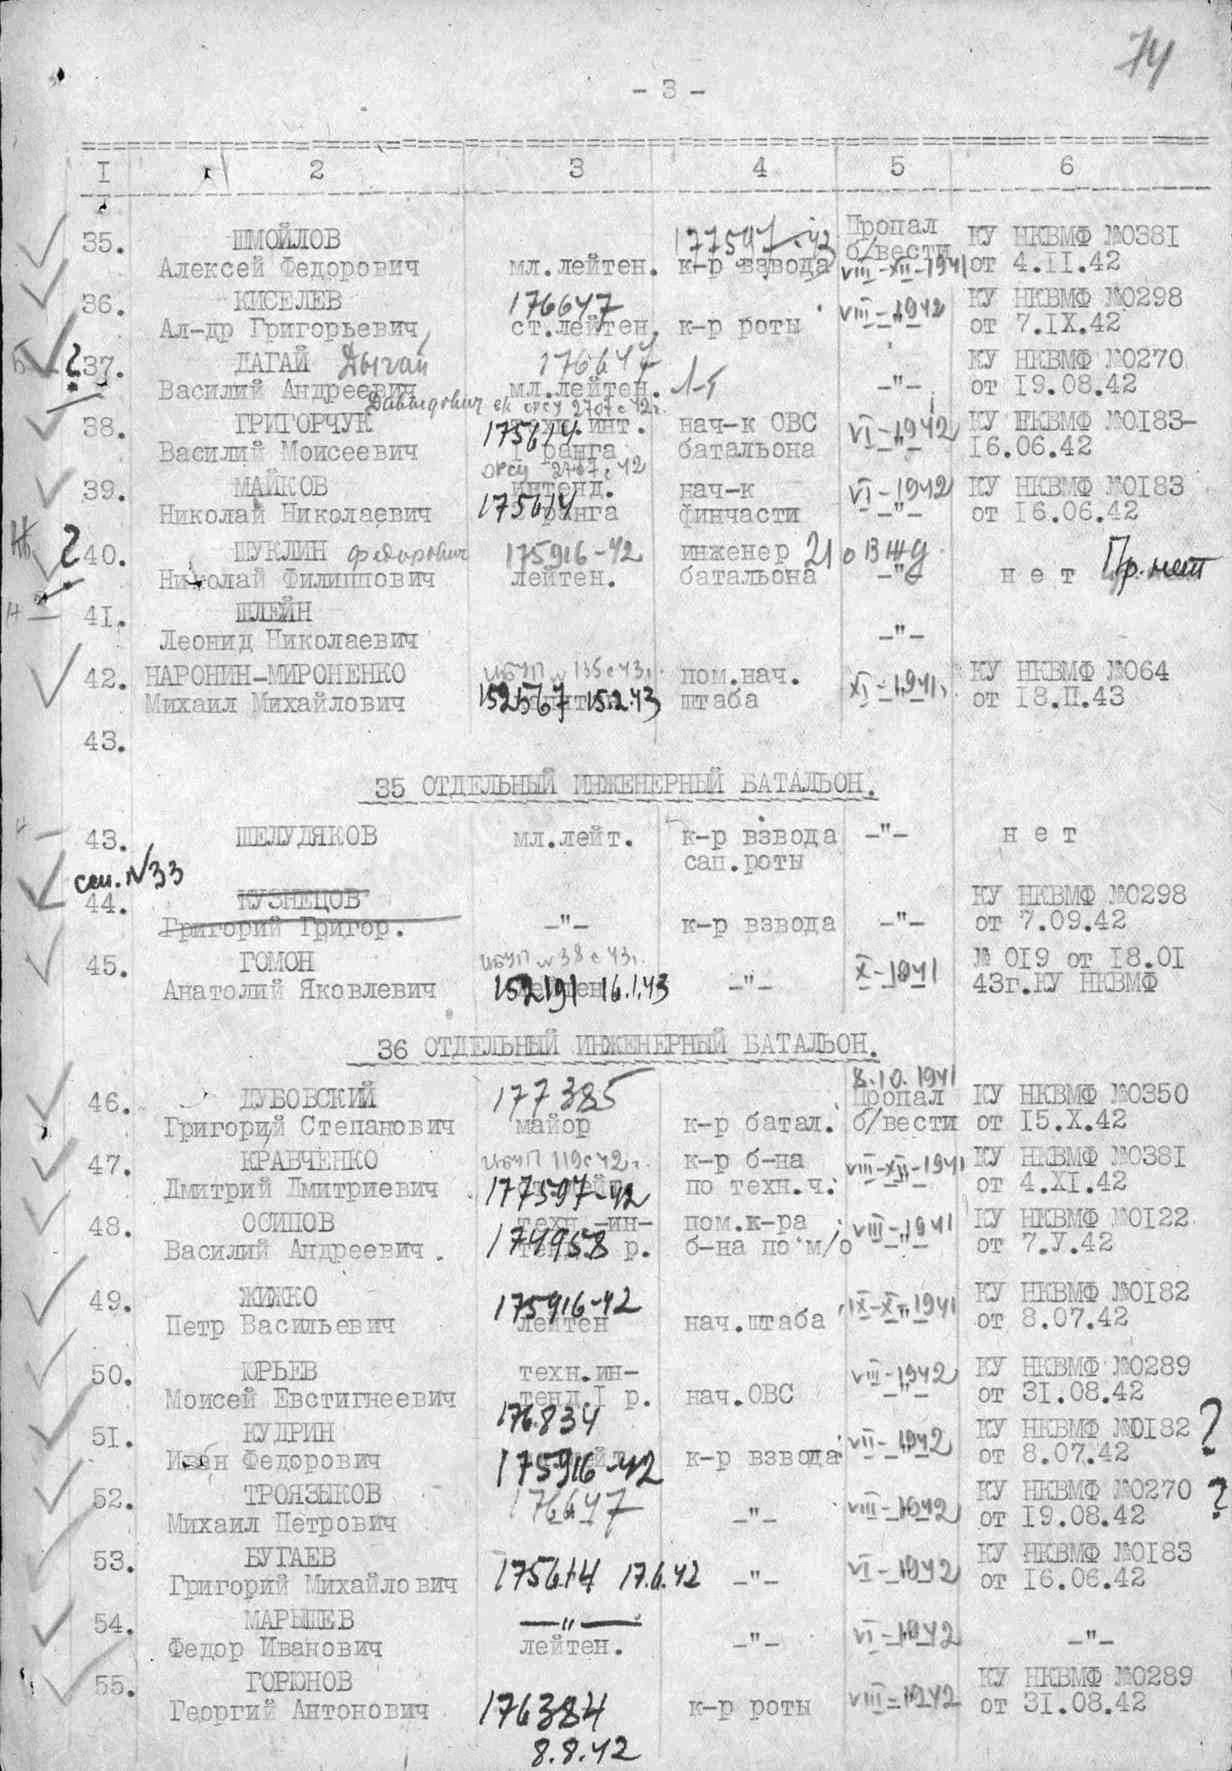 74
- 3 -
I 2 3 4 5 6
35. ШМОЙЛОВ 177597-42 Пропал КУ НКВМФ №0381
Алексей Федорович мл.лейтен. к-р взвода б/вести VIII-XII-1941 от 4.II.42
36. КИСЕЛЕВ 176647 VIII-1942 КУ НКВМФ №0298
Ал-др Григорьевич ст.лейтен. к-р роты -"- от 7.IX.42
? 37. ДАГАЙ Дыгай 176647 КУ НКВМФ №0270
Василий Андреевич мл.лейтен. Л-т -"- от 19.08.42
Давыдович
38. ГРИГОРЧУК 175614 инт. нач-к ОВС VI-1942 КУ НКВМФ №0183-
Василий Моисеевич I ранга батальона 16.06.42
39. МАЙКОВ интенд. нач-к VI-1942 КУ НКВМФ №0183
Николай Николаевич 175614 ранга финчасти -"- от 16.06.42
? 40. ШУКЛИН Федорович 175916-42 инженер 21 о ВЖд Пр. нет
Николай Филиппович лейтен. батальона -"- н е т
41. ШЛЕЙН
Леонид Николаевич -"-
42. НАРОНИН-МИРОНЕНКО пом.нач. XI-1941г. КУ НКВМФ №064
Михаил Михайлович 152567 15.2.43 штаба от 18.II.43
43.
35 ОТДЕЛЬНЫЙ ИНЖЕНЕРНЫЙ БАТАЛЬОН.
43. ШЕЛУДЯКОВ мл.лейт. к-р взвода -"- н е т
сап.роты
см. №33
44. КУЗНЕЦОВ КУ НКВМФ №0298
Григорий Григор. -"- к-р взвода -"- от 7.09.42
45. ГОМОН X-1941 № 019 от 18.01
Анатолий Яковлевич 152191 16.1.43 -"- 43г.КУ НКВМФ
36 ОТДЕЛЬНЫЙ ИНЖЕНЕРНЫЙ БАТАЛЬОН.
8.10.1941
46. ДУБОВСКИЙ 177385 Пропал КУ НКВМФ №0350
Григорий Степанович майор к-р батал. б/вести от 15.X.42
47. КРАВЧЕНКО к-р б-на VIII-XII-1941 КУ НКВМФ №0381
Дмитрий Дмитриевич 177597-42 по техн.ч. от 4.XI.42
48. ОСИПОВ техн.-ин- пом.к-ра VIII-1941 КУ НКВМФ №0122
Василий Андреевич. 179958 р. б-на по м/о -"- от 7.У.42
49. ЖИЖКО 175916-42 IX-XI-1941 КУ НКВМФ №0182
Петр Васильевич лейтен нач.штаба -"- от 8.07.42
50. ЮРЬЕВ техн.ин- VIII-1942 КУ НКВМФ №0289
Моисей Евстигнеевич тенд.I р. нач.ОВС -"- от 31.08.42
176.834
51. КУДРИН VII-1942 КУ НКВМФ №0182 ?
Иван Федорович 175916-42 к-р взвода от 8.07.42
52. ТРОЯЗЫКОВ 176647 VIII-1942 КУ НКВМФ №0270 ?
Михаил Петрович -"- от 19.08.42
53. БУГАЕВ VI-1942 КУ НКВМФ №0183
Григорий Михайлович 175614 17.6.42 -"- от 16.06.42
54. МАРЫШЕВ -"- VI-1942
Федор Иванович лейтен. -"- -"-
55. ГОРЮНОВ КУ НКВМФ №0289
Георгий Антонович 176384 к-р роты VIII-1942 от 31.08.42
8.8.42